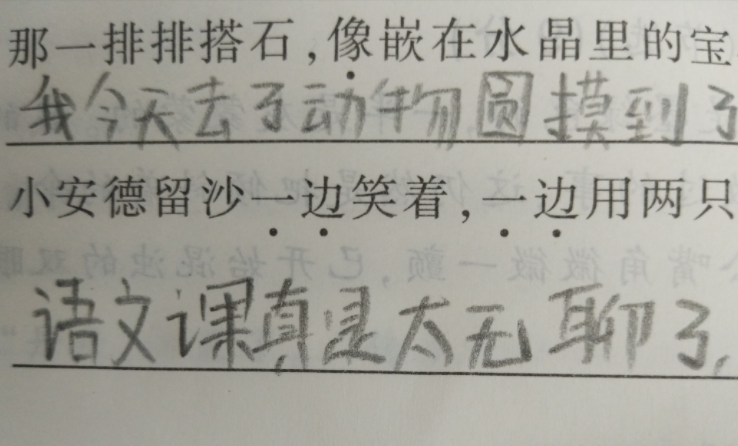 那一排排搭石,像嵌在水晶里的宝
我今天去了动物圆摸到了
小安德留沙一边笑着,一边用两只
语文课真是太无聊了,